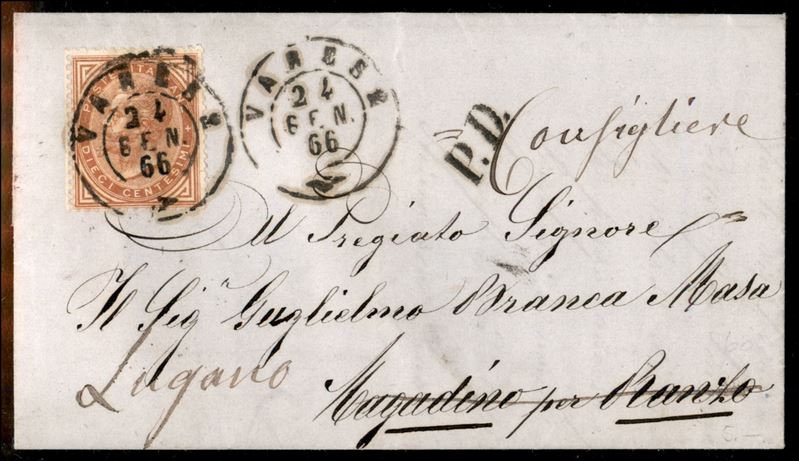 POSTE ITALIANE
DIECI CENTESIMI
VARESE
24
GEN.
66
VARESE
24
GEN.
66
P.D.
Consigliere
Al Pregiato Signore
Il Sigr Guglielmo Branca Masa
Lugano
Magadino per Ranzo